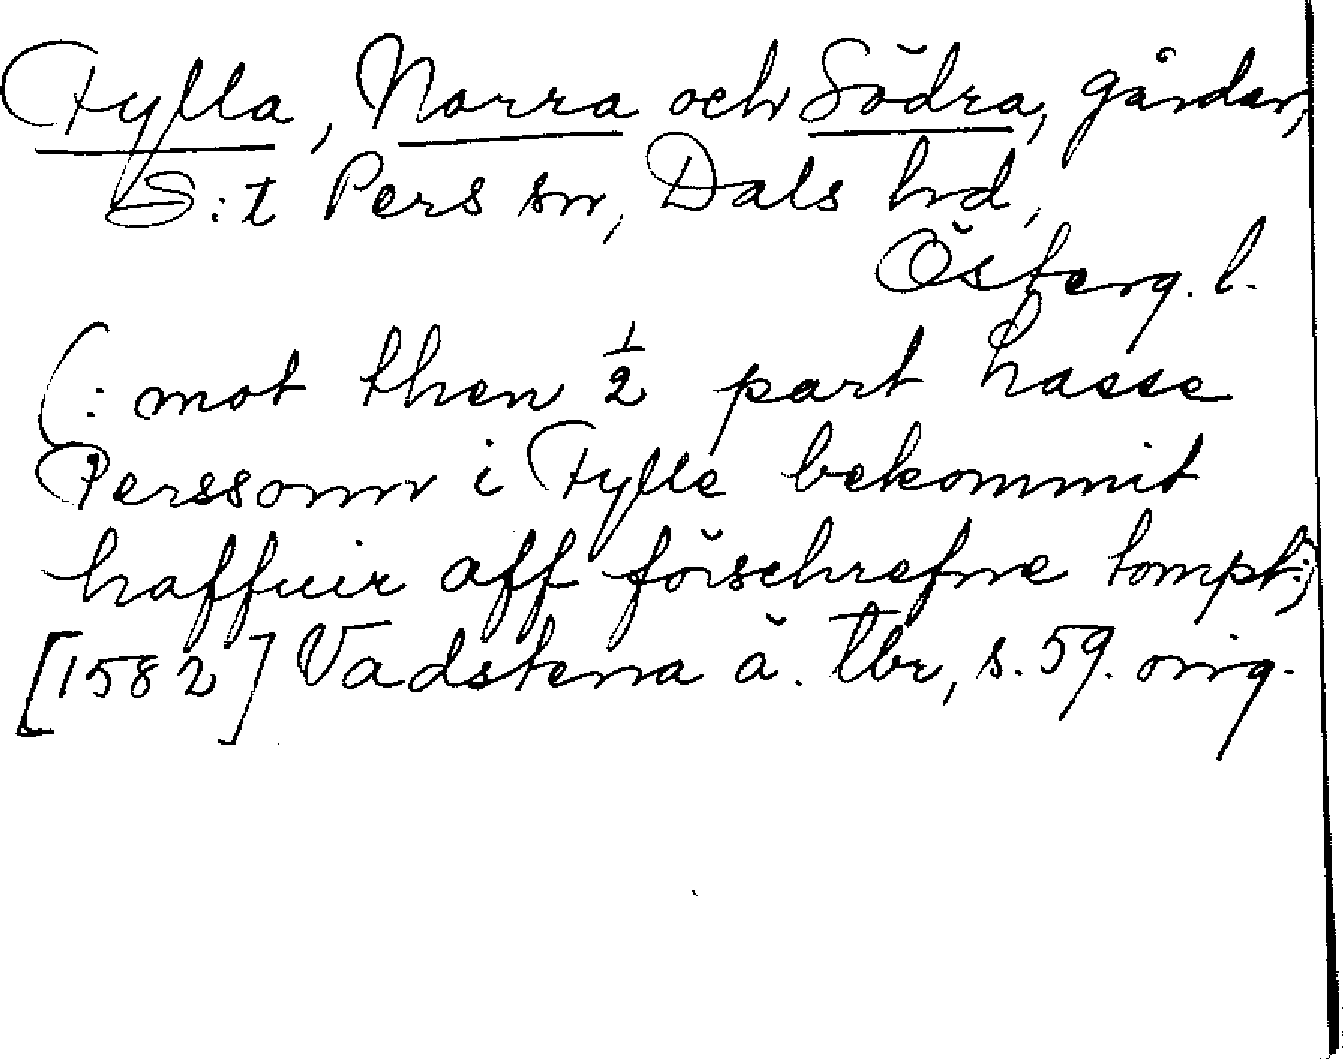 Fylla, Norra och Södra, gårdar,
S:t Pers sn, Dals hd,
Österg. l.
(: mot then ½ part hasse
Perssonn i Fylle bekommit
haffuir aff förschrefne tompt:)
[1582] Vadstena ä. tbr, s. 59. orig.